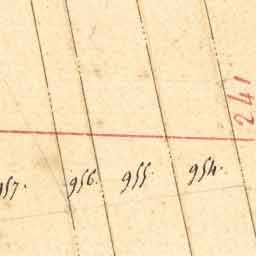 241
957. 956. 955. 954.